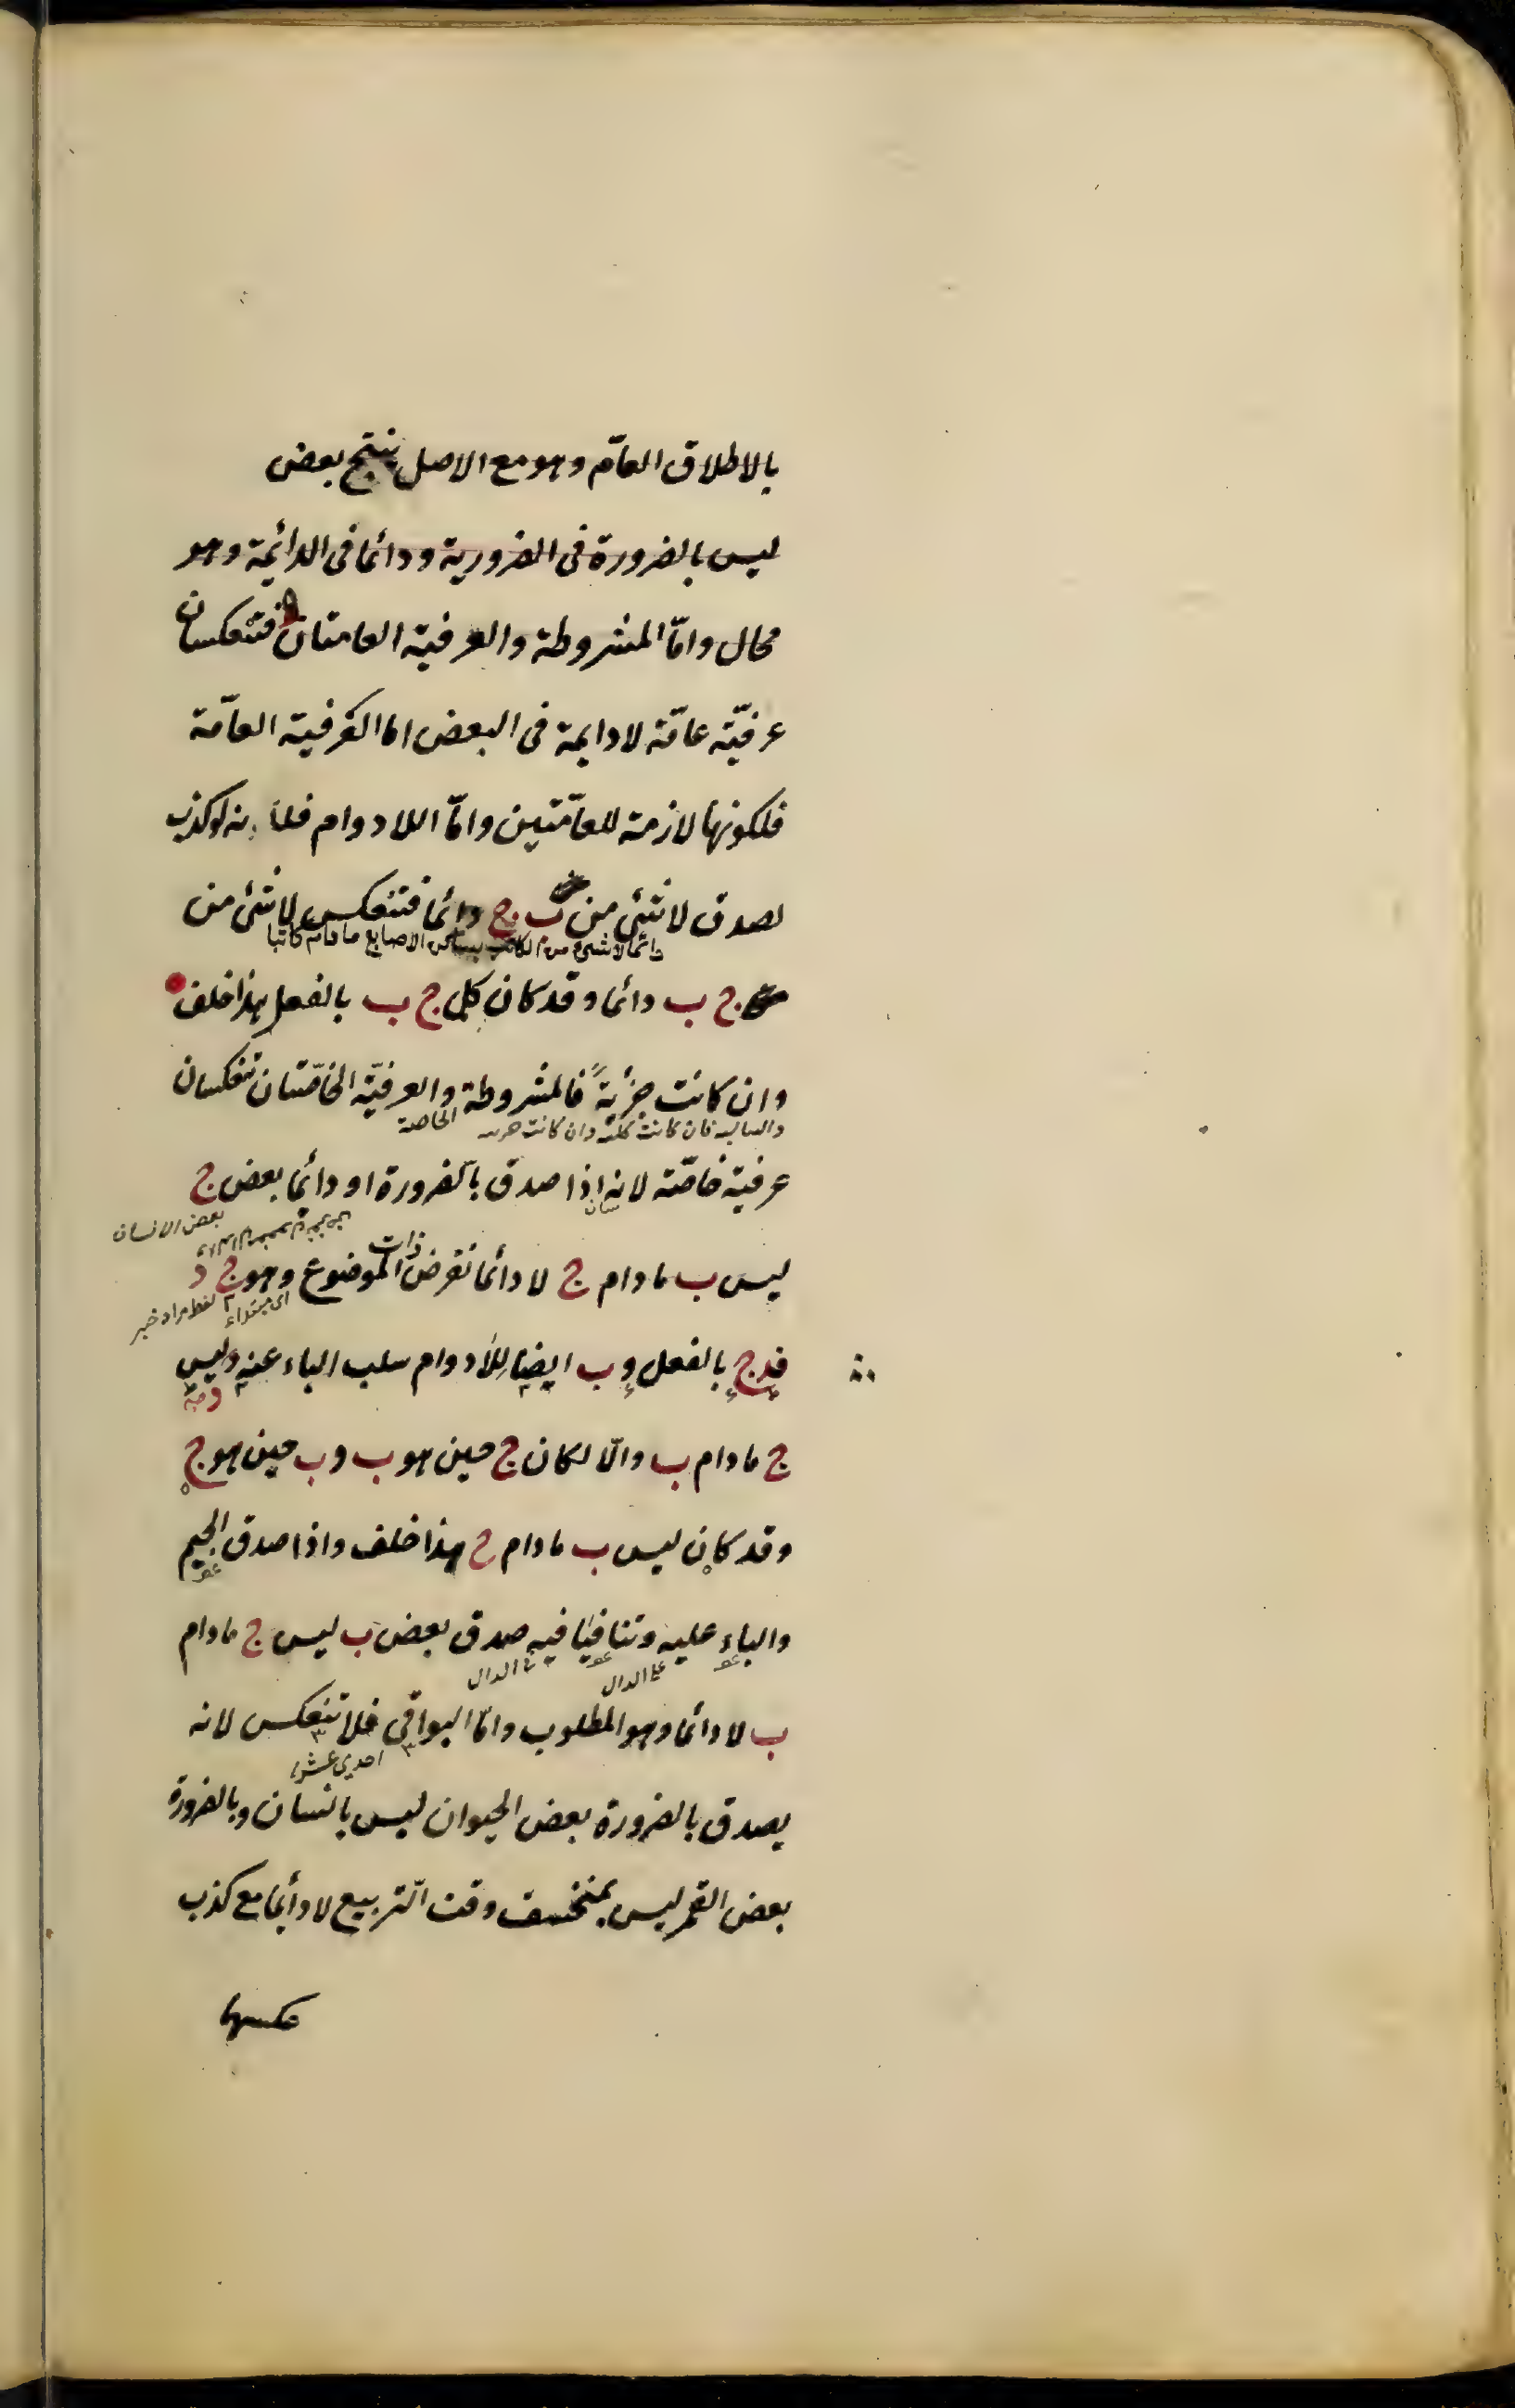 بالاطلاق العامّ وهو مع الاصل ينتج بعض
ليس بالضرورة فى الضرورية ودائما فى الدائمة وهو
محال وامّا المشروطة والعرفية العامتان فتنعكسان
عرفيّة عامّة لادايمة فى البعض اما العرفية العامّة
فلكونها لازمة للعامّتين وامّا اللادوام فلانه لو كذب
لصدق لا شئ من ب ج دائما فتنعكس لا شئ من
دائما لا شئ من الكاتب بساكن الاصابع ما دام كاتبا
ج ب دائما وقد كان كل ج ب بالفعل هذا خلف
وان كانت جزئية فالمشروطة والعرفيّة الخاصّتان تنعكسان
والسالبة فان كانت كلية وان كانت الخاصة
عرفية خاصّة لانه اذا صدق بالضرورة او دائما بعض ج
بعض الانسان
ليس ب مادام ج لا دائما نفرض ذات الموضوع وهو ج د
اى مبتداء لفظ مراد خبر
فدج بالفعل وب ايضا للادوام سلب الباء عنه وليس
ج مادام ب والّا لكان ج حين هو ب وب حين هو ج
وقد كان ليس ب مادام ج هذا خلف واذا صدق الجيم
والباء عليه وتنافيا فيه صدق بعض ب ليس ج مادام
على الدال فى الدال
ب لا دائما وهو المطلوب وامّا البواقى فلا تنعكس لانه
يصدق بالضرورة بعض الحيوان ليس بانسان وبالضرورة
بعض القمر ليس بمنخسف وقت التربيع لا دائما مع كذب
عكسها